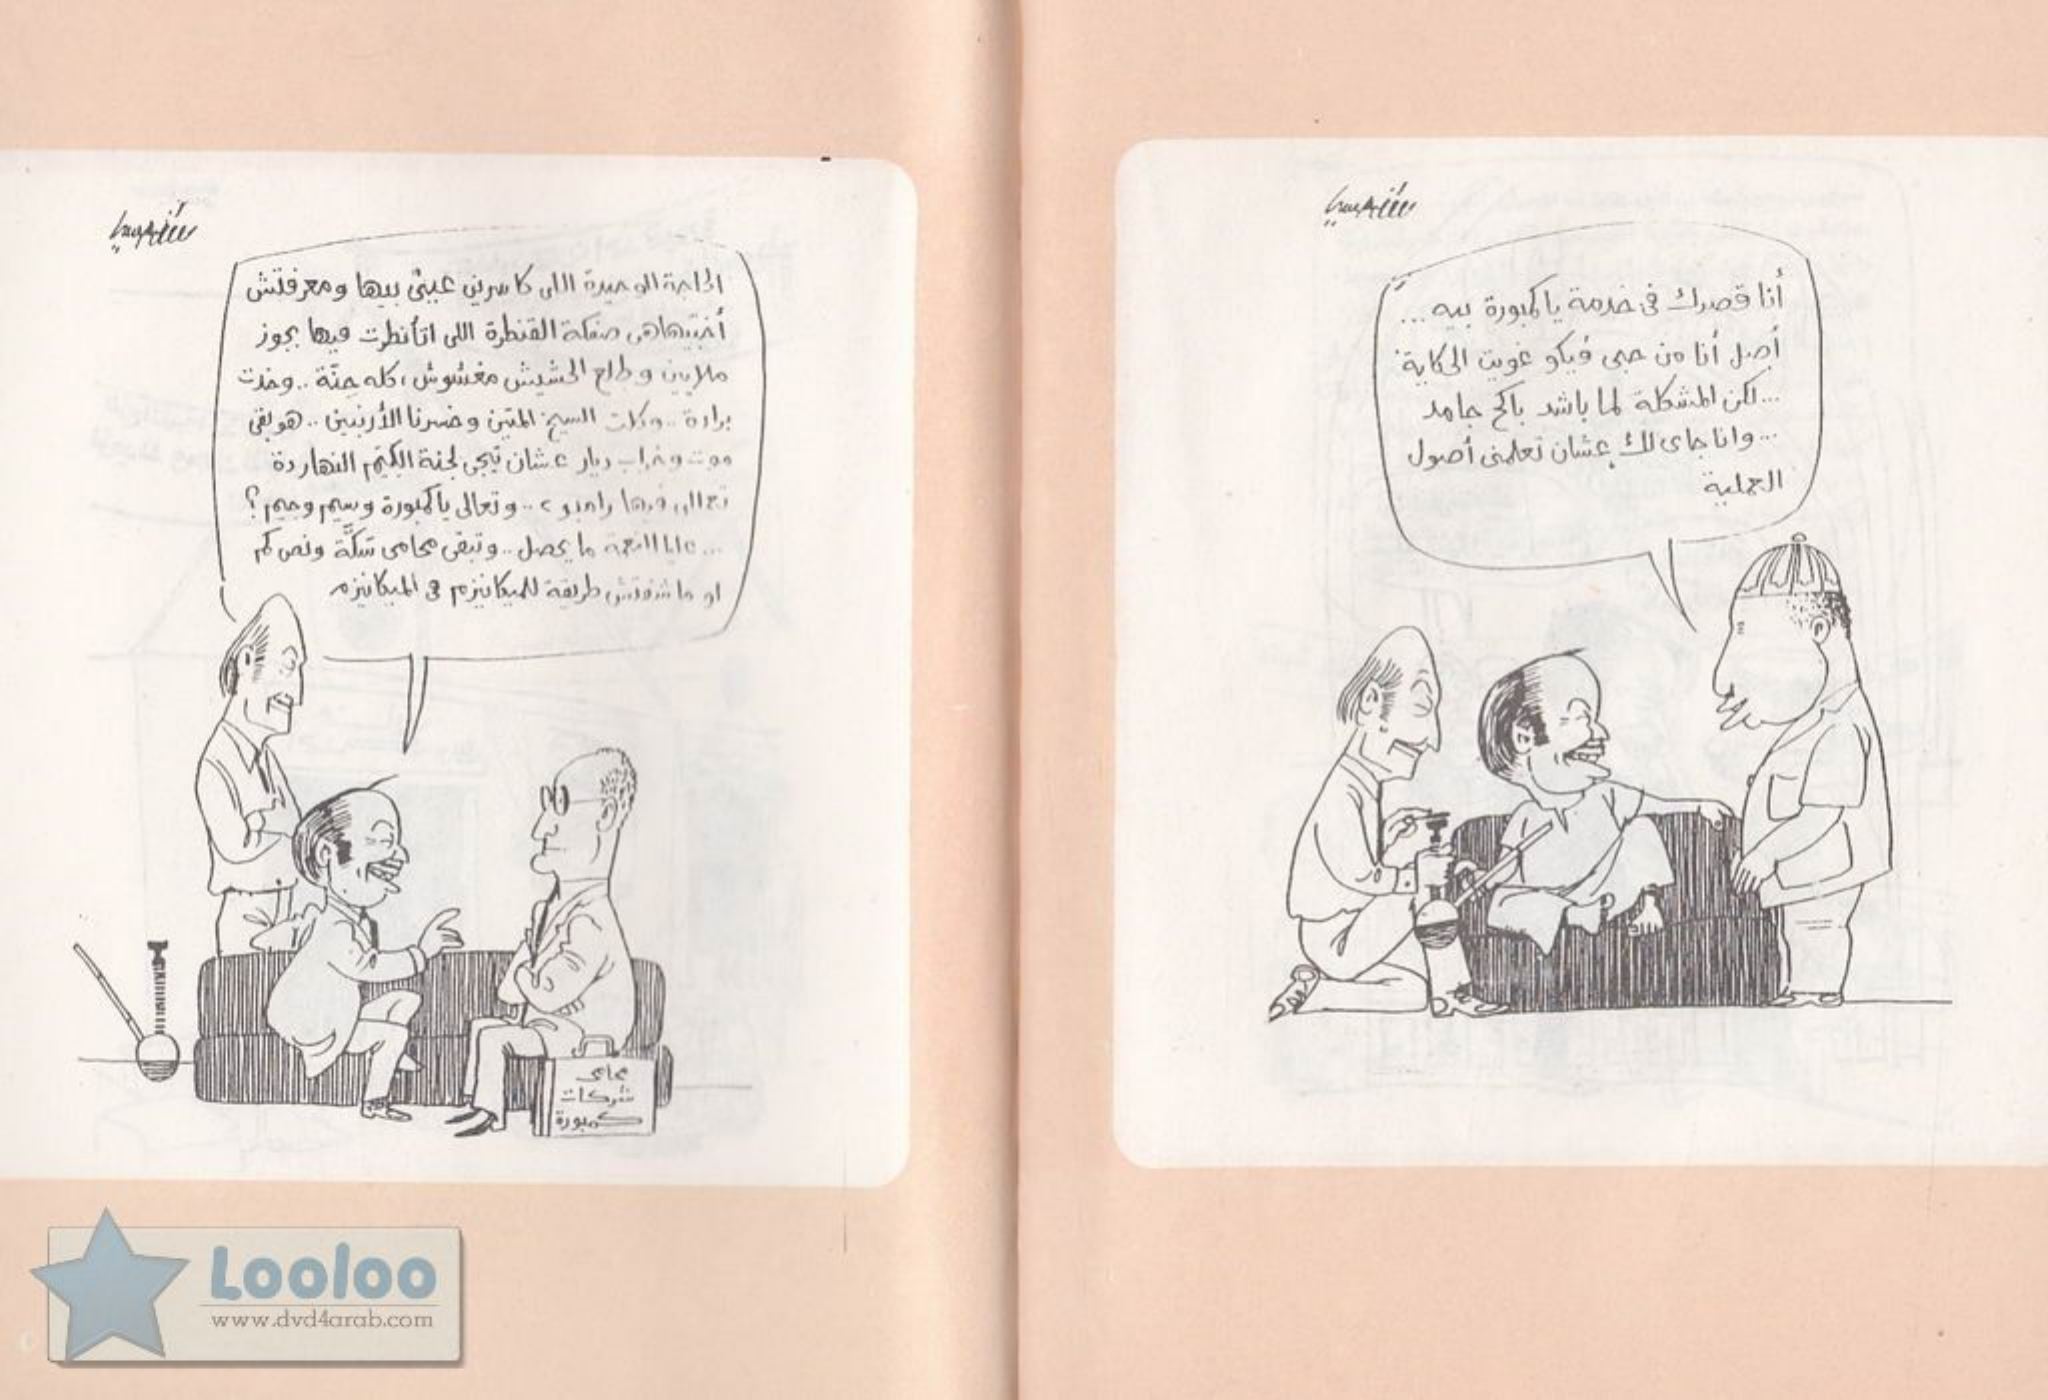 أنا قصدك فى خدمة يا كمبورة بيه ...
أصل أنا من حبى فيكو غويت الحكاية
... لكن المشكلة لما باشد باكح جامد
... وانا جاى لك عشان تعلمنى أصول
العملية
الحاجة الوحيدة اللى كاسرين عينى بيها ومعرفتش
أخبيها هى صفقة القنطرة اللى اتأنطرت فيها بجوز
ملايين وطلع الحشيش مغشوش، كله حنة .. وخدت
برادة .. وكلت السيخ المتين وخسرنا الأرنبين .. هو بقى
موت وخراب ديار عشان تيجى لجنة الكيتم النهاردة
فيها رامبو ٢ .. وتعالى يا كمبورة وسيم وجيم؟
... النعمة ما يحصل .. وتبقى محامى تكّة ونص كم
لو ما شفتش طريقة للميكانيزم فى الميكانيزم
محامى
شركات
كمبورة
Looloo
www.dvd4arab.com